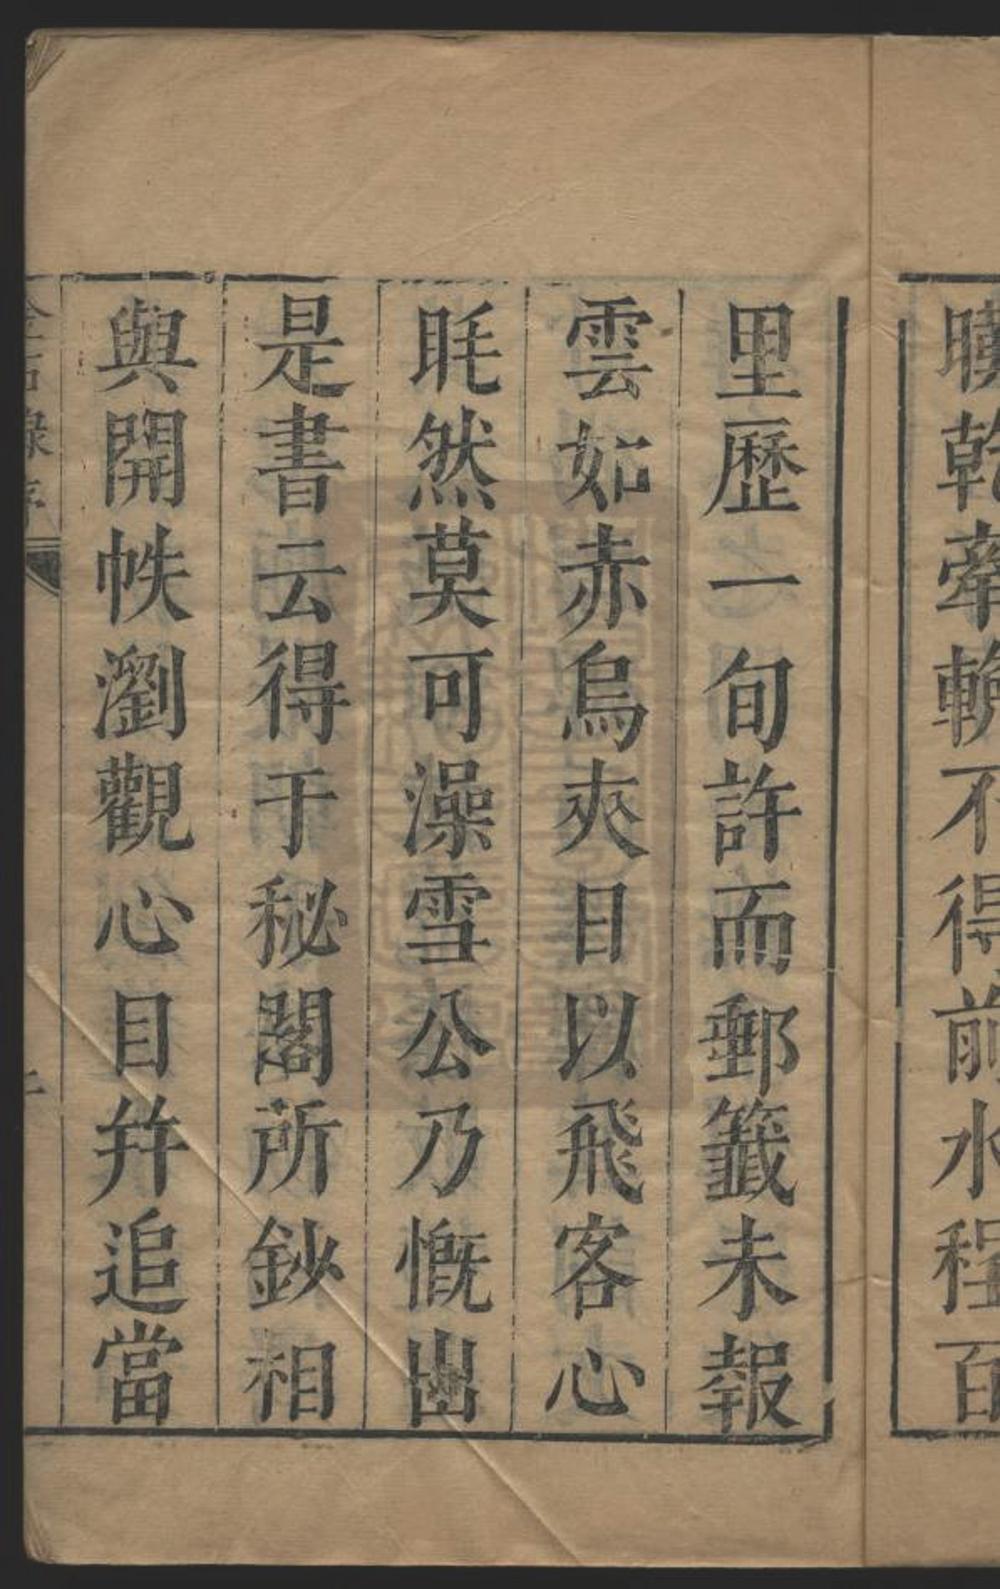 暵乾牽輓不得前水程百
里歷一旬許而郵籤未報
雲如赤烏夾日以飛客心
眊然莫可澡雪公乃慨出
是書云得于秘閣所鈔相
與開帙瀏觀心目幷追當
金石錄序